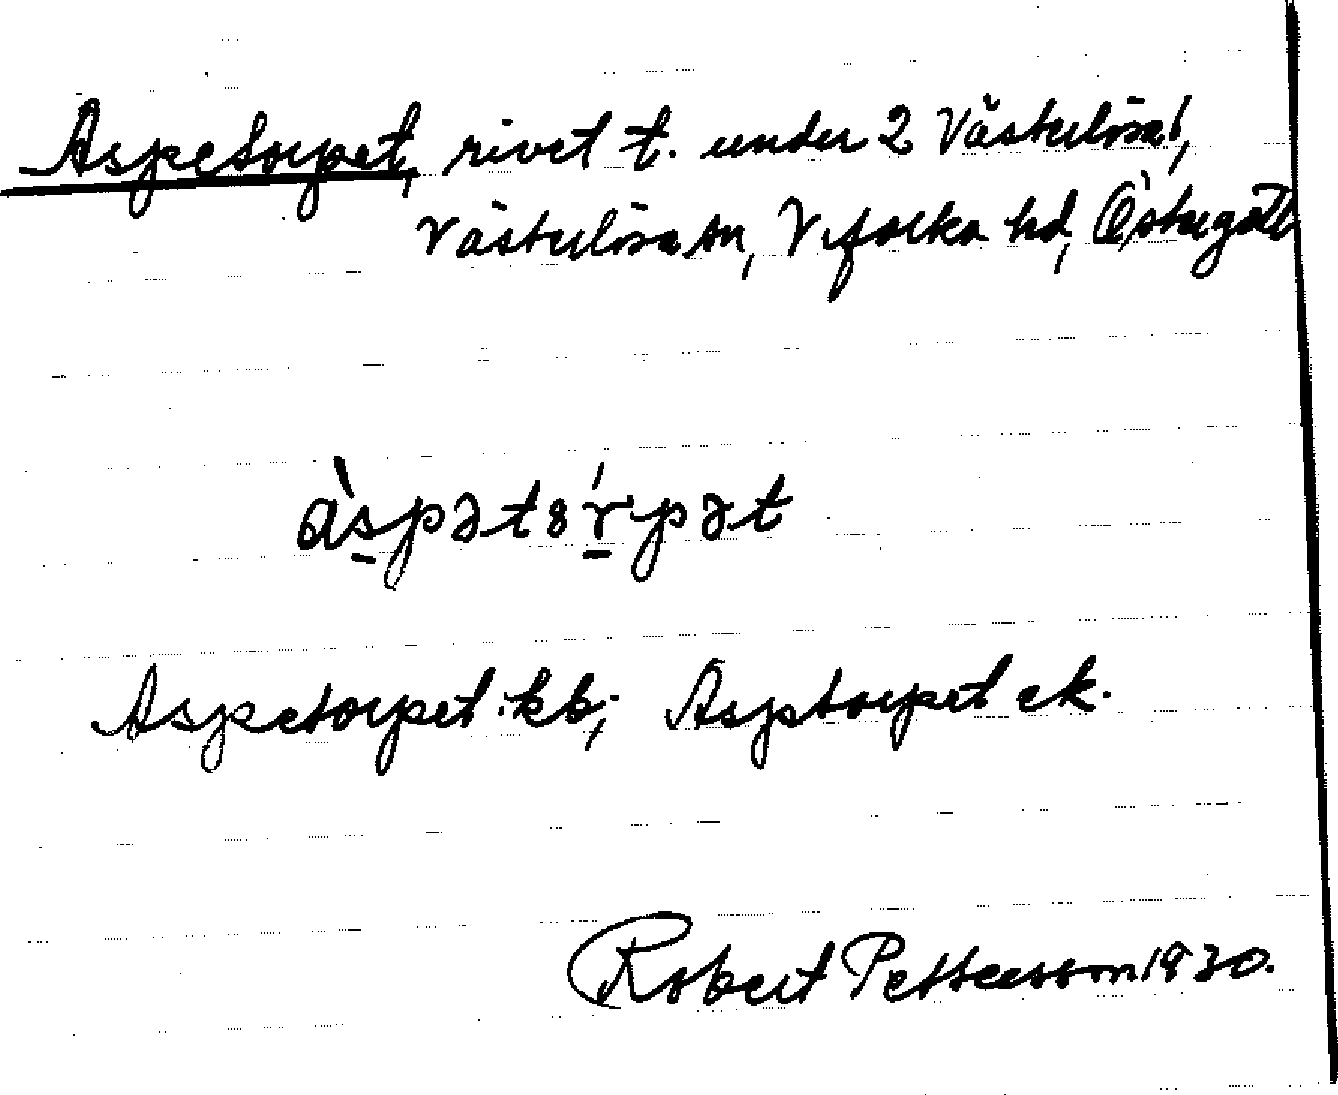 Aspetorpet, rivet t. under 2 Västerlösa,
Västerlösa sn, Vifolka hd, Östergötl
àspətórpət
Aspetorpet kb; Asptorpet ek.
Robert Pettersson 1930.